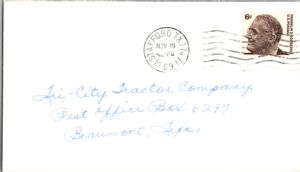 STAFFORD, TX 774
NOV 19
PM
1969
6¢
Tri-City Tractor Company
Post Office Box 6297
Beaumont, Texas